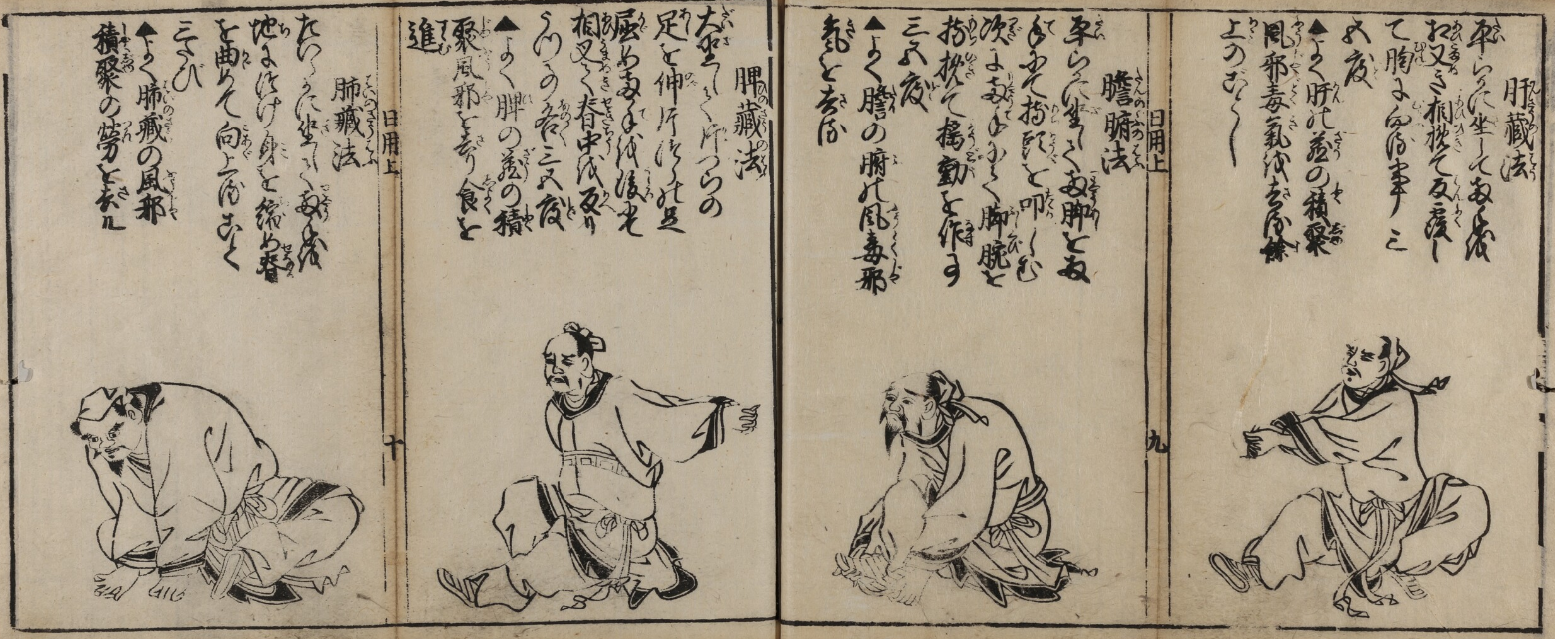 肝藏法
平らかに坐して両手を
相叉き相捴て反覆し
て胸に向る事三
五度
▲よく肝の蔵の積聚
風邪毒氣を去る餘
上のごとし
日用上
九
膽腑法
平らかに坐して両脚を
手にて持頭を叩し
次に両手にて脚腕を
持捴て揺動を作す
三五度
▲よく膽の腑の風毒邪
氣を去る
脾藏法
大坐して片つらの
足を伸片つらの足
屈め両手を後に
相叉て脊中を反り
うつの各三五度
▲よく脾の蔵の積
聚風邪を去り食を
進む
日用上
十
肺藏法
たいらかに坐して両手を
地につけ身を縮め脊
を曲めて向上る
三たび
▲よく肺藏の風邪
積聚の労を去ル